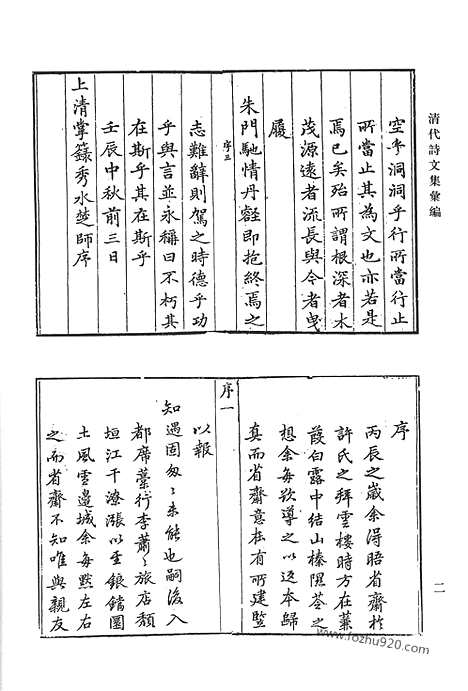 清代詩文集彙編
空乎洞洞乎行所當行止
所當止其為文也亦若是
焉已矣殆所謂根深者木
茂源遠者流長與今者曳
履
朱門馳情丹壑即抱終焉之
序三
志難辭則駕之時德乎功
乎與言並永稱曰不朽其
在斯乎其在斯乎
壬辰中秋前三日
上清掌籙秀水楚師序
序
丙辰之歲余得晤省齋於
許氏之拜雲樓時方在蒹
葭白露中結山榛隰苓之
想余每欲導之以返本歸
真而省齋意在有所建豎
序一
以報
知遇固匆匆未能也嗣後入
都席藁行李蕭蕭旅店頹
垣江干潦漲以至鋃鐺圜
土風雪邊城余每默左右
之而省齋不知唯與親友
二
www.fozhu920.com